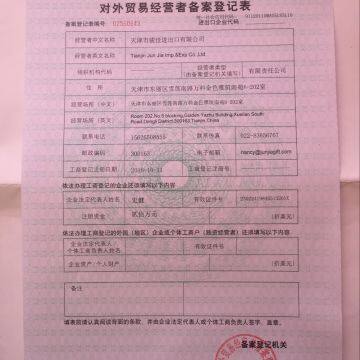 对外贸易经营者备案登记表
备案登记表编号:
进出口企业代码:
经营者中文名称 天津市骏佳进出口有限公司
经营者英文名称 Tianjin Jun Jia Imp.&Exp Co.,Ltd
组织机构代码
经营者类型
(由备案登记机关填写) 有限责任公司
住 所 天津市东丽区雪莲南路万科金色雅筑商苑6-202室
经营场所(中文) 天津市东丽区雪莲南路万科金色雅筑商苑6-202室
经营场所(英文) Room 202,No.6 blocking,Golden Yazhu Building,Xuelian South Road,Dongli District,300163,Tianjin,China
联系电话 联系传真 022-83656767
邮政编码 300163 电子邮箱 nancy@junjiagift.com
工商登记注册日期 2010-10-11 工商登记注册号
依法办理工商登记的企业还须填写以下内容
企业法定代表人姓名 史健 有效证件号
注册资金 贰佰万元 (折美元)
依法办理工商登记的外国(地区)企业或个体工商户(独资经营者)还须填写以下内容
企业法定代表人/
个体工商负责人姓名 有效证件号
企业资产/个人财产 (折美元)
备注
填表前请认真阅读背面的条款,并由企业法定代表人或个体工商负责人签字、盖章。
备案登记机关